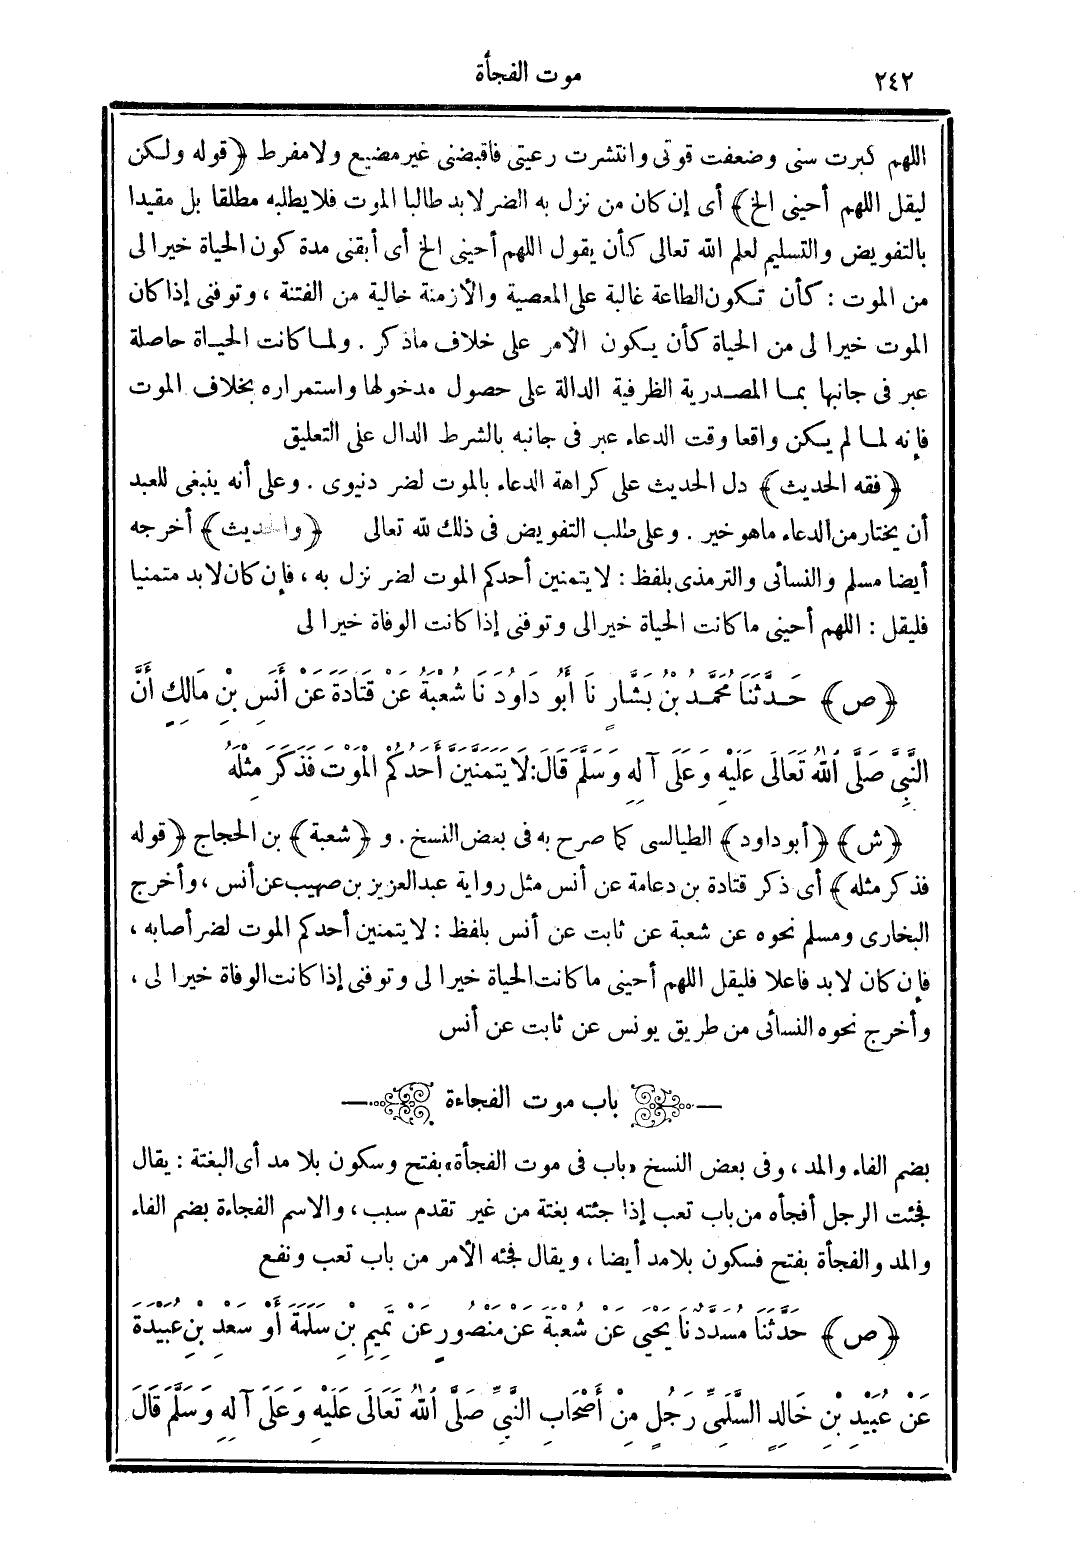 ٢٤٢
موت الفجأة
اللهم كبرت سنى وضعفت قوتى وانتشرت رعيتى فاقبضنى غير مضيع ولا مفرط ﴿قوله ولكن
ليقل اللهم أحينى الخ﴾ أى إن كان من نزل به الضر لابد طالبا الموت فلا يطلبه مطلقا بل مقيدا
بالتفويض والتسليم لعلم الله تعالى كأن يقول اللهم أحينى الخ أى أبقنى مدة كون الحياة خيرا لى
من الموت : كأن تكون الطاعة غالبة على المعصية والأزمنة خالية من الفتنة ، وتوفنى إذا كان
الموت خيرا لى من الحياة كأن يكون الأمر على خلاف ماذكر . ولما كانت الحياة حاصلة
عبر فى جانبها بما المصدرية الظرفية الدالة على حصول مدخولها واستمراره بخلاف الموت
فإنه لما لم يكن واقعا وقت الدعاء عبر فى جانبه بالشرط الدال على التعليق
﴿فقه الحديث﴾ دل الحديث على كراهة الدعاء بالموت لضر دنيوى . وعلى أنه ينبغى للعبد
أن يختار من الدعاء ماهو خير . وعلى طلب التفويض فى ذلك لله تعالى ﴿والحديث﴾ أخرجه
أيضا مسلم والنسائى والترمذى بلفظ : لا يتمنين أحدكم الموت لضر نزل به ، فإن كان لابد متمنيا
فليقل : اللهم أحينى ما كانت الحياة خيرا لى وتوفنى إذا كانت الوفاة خيرا لى
﴿ص﴾ حَدَّثَنَا مُحَمَّدُ بْنُ بَشَّارٍ نَا أَبُو دَاوُدَ نَا شُعْبَةُ عَنْ قَتَادَةَ عَنْ أَنَسِ بْنِ مَالِكٍ أَنَّ
النَّبِىَّ صَلَّى اللهُ تَعَالَى عَلَيْهِ وَعَلَى آلِهِ وَسَلَّمَ قَالَ: لَا يَتَمَنَّيَنَّ أَحَدُكُمُ الْمَوْتَ فَذَكَرَ مِثْلَهُ
﴿ش﴾ ﴿أبو داود﴾ الطيالسى كما صرح به فى بعض النسخ . و ﴿شعبة﴾ بن الحجاج ﴿قوله
فذكر مثله﴾ أى ذكر قتادة بن دعامة عن أنس مثل رواية عبد العزيز بن صهيب عن أنس ، وأخرج
البخارى ومسلم نحوه عن شعبة عن ثابت عن أنس بلفظ : لا يتمنين أحدكم الموت لضر أصابه ،
فإن كان لابد فاعلا فليقل اللهم أحينى ما كانت الحياة خيرا لى وتوفنى إذا كانت الوفاة خيرا لى ،
وأخرج نحوه النسائى من طريق يونس عن ثابت عن أنس
باب موت الفجاءة
بضم الفاء والمد ، وفى بعض النسخ «باب فى موت الفجأة» بفتح وسكون بلا مد أى البغتة : يقال
فجئت الرجل أفجأه من باب تعب إذا جئته بغتة من غير تقدم سبب ، والاسم الفجاءة بضم الفاء
والمد والفجأة بفتح فسكون بلا مد أيضا ، ويقال فجئه الأمر من باب تعب ونفع
﴿ص﴾ حَدَّثَنَا مُسَدَّدٌ نَا يَحْيَى عَنْ شُعْبَةَ عَنْ مَنْصُورٍ عَنْ تَمِيمِ بْنِ سَلَمَةَ أَوْ سَعْدِ بْنِ عُبَيْدَةَ
عَنْ عُبَيْدِ بْنِ خَالِدٍ السُّلَمِىِّ رَجُلٍ مِنْ أَصْحَابِ النَّبِىِّ صَلَّى اللهُ تَعَالَى عَلَيْهِ وَعَلَى آلِهِ وَسَلَّمَ قَالَ